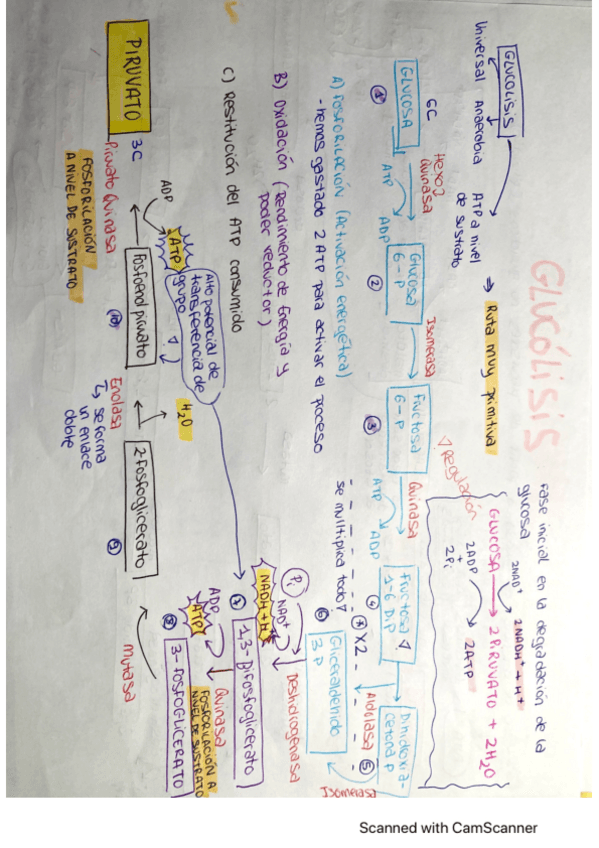 GLUCÓLISIS
GLUCOLISIS
Universal
Anaerobia
ATP a nivel
de sustrato
Ruta muy primitiva
Fase inicial en la degradación de la
glucosa
2NAD⁺
2NADH⁺ + H⁺
GLUCOSA → 2 PIRUVATO + 2H₂O
2ADP
+
2Pi
2ATP
6C
GLUCOSA
①
Hexoquinasa
ATP
ADP
Glucosa
6-P
②
Isomerasa
Fructosa
6-P
③
Regulación
Quinasa
ATP
ADP
Fructosa
1-6 DiP
④
Aldolasa
Dihidroxia-
cetona P
⑤
Isomerasa
A) FOSFORILACIÓN (activación energética)
- hemos gastado 2 ATP para activar el proceso
* X2
se multiplica todo
Gliceraldehido
3P
⑥
B) Oxidación (Rendimiento de Energía y
poder reductor)
Pi
NAD⁺
NADH + H⁺
Deshidrogenasa
C) Restitución del ATP consumido
1,3-Bifosfoglicerato
⑦
Alto potencial de
transferencia de
grupo
ADP
ATP
Quinasa
FOSFORILACIÓN A
NIVEL DE SUSTRATO
3-FOSFOGLICERATO
⑧
Mutasa
2-Fosfoglicerato
⑨
H₂O
Enolasa
↳ se forma
un enlace
doble
Fosfoenolpiruvato
⑩
ADP
ATP
Piruvato Quinasa
FOSFORILACIÓN
A NIVEL DE SUSTRATO
PIRUVATO
3C
Scanned with CamScanner